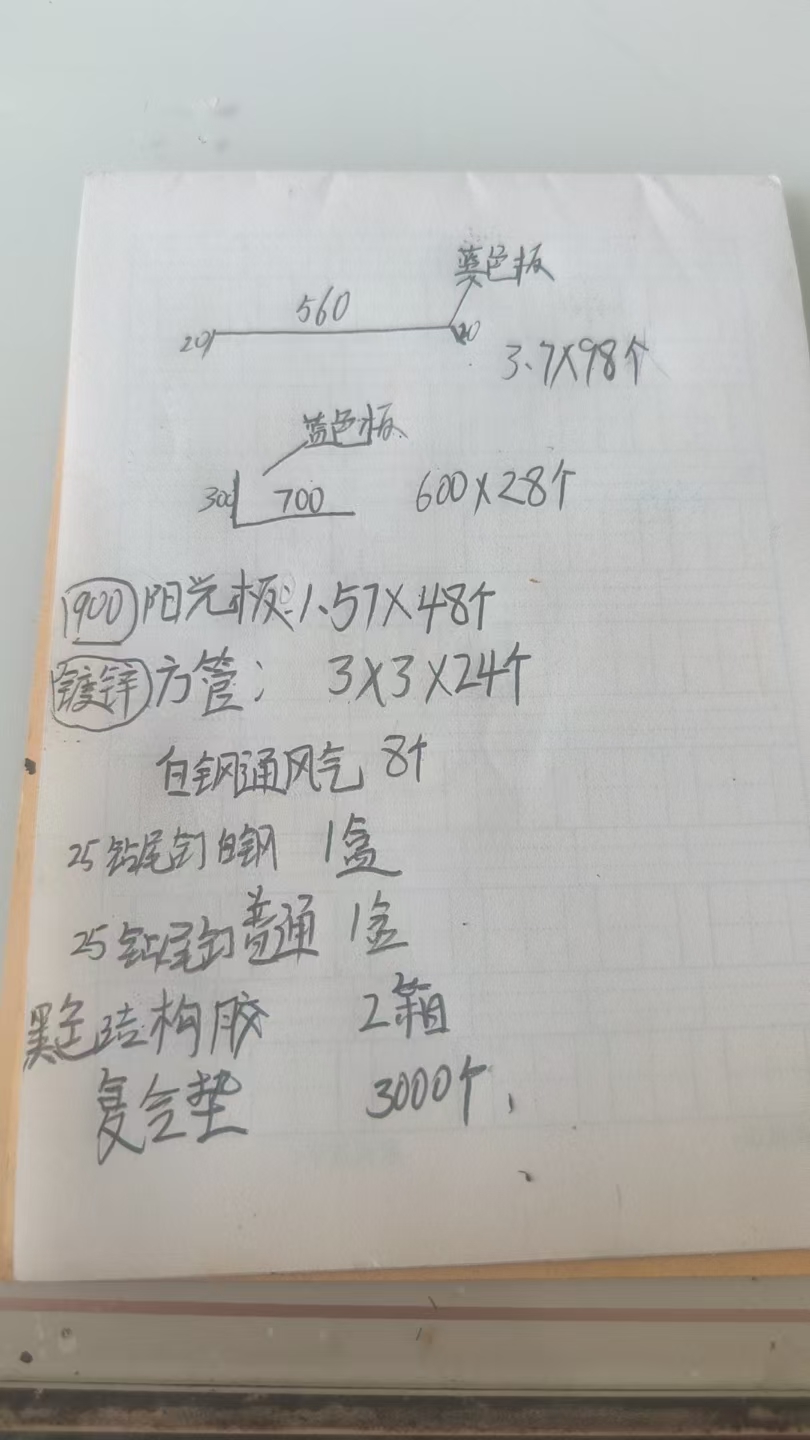 蓝色板
560
20
20
3.7X98个
蓝色板
300
700
600X28个
1900 阳光板:1.57X48个
镀锌 方管: 3X3X24个
白钢通风气 8个
25钻尾钉白钢 1盒
25钻尾钉普通 1盒
黑色结构胶 2箱
复合垫 3000个